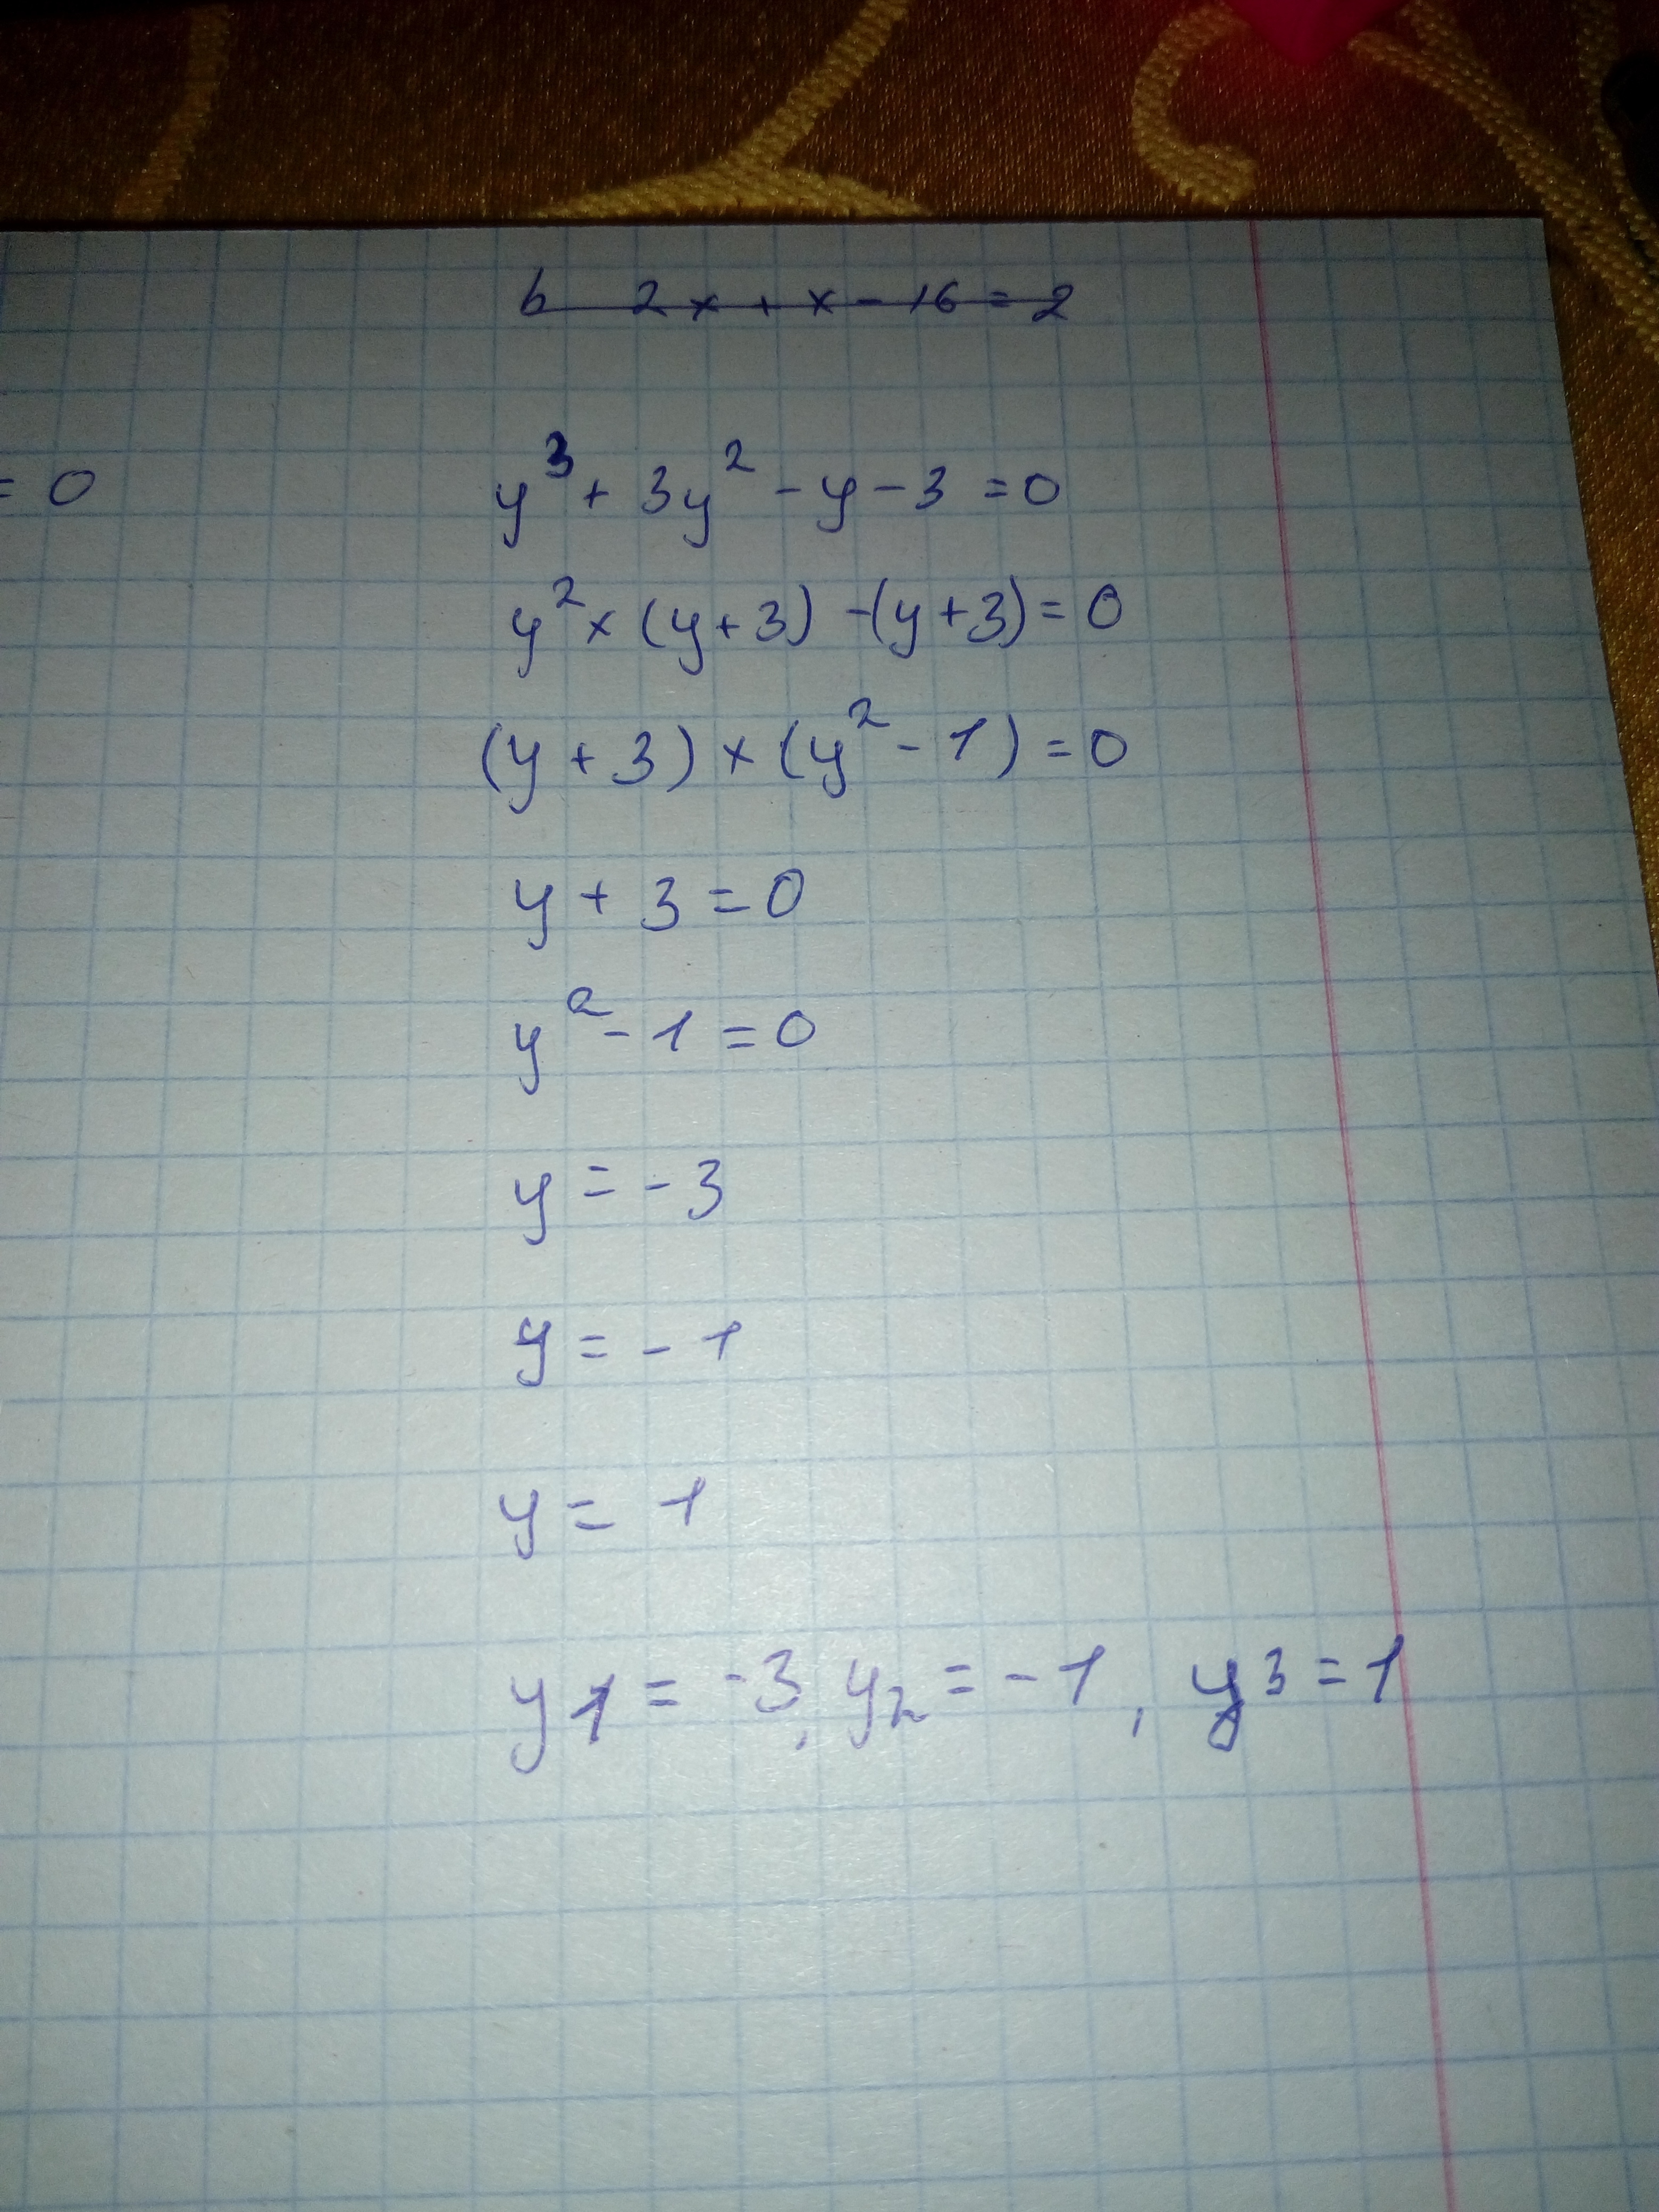 b 2x + x - 16 = 2
= 0
y³ + 3y² - y - 3 = 0
y² × (y + 3) - (y + 3) = 0
(y + 3) × (y² - 1) = 0
y + 3 = 0
y² - 1 = 0
y = -3
y = -1
y = 1
y1 = -3, y₂ = -1, y3 = 1